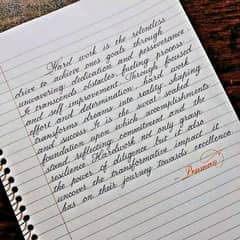 Hard work is the relentless
drive to achieve ones goals through
unwavering dedication and perseverance.
It transcends obstacles, fueling progress
and self improvement. Through focused
effort and determination, hard work
transforms dreams into reality, shaping
and success. It is the sweat-soaked
foundation upon which accomplishments
stand, reflecting commitment and the
resilience. Hardwork not only grasp
the power of diligence but it also
uncover the transformative impact it
has on their journey towards excellence.
Penman